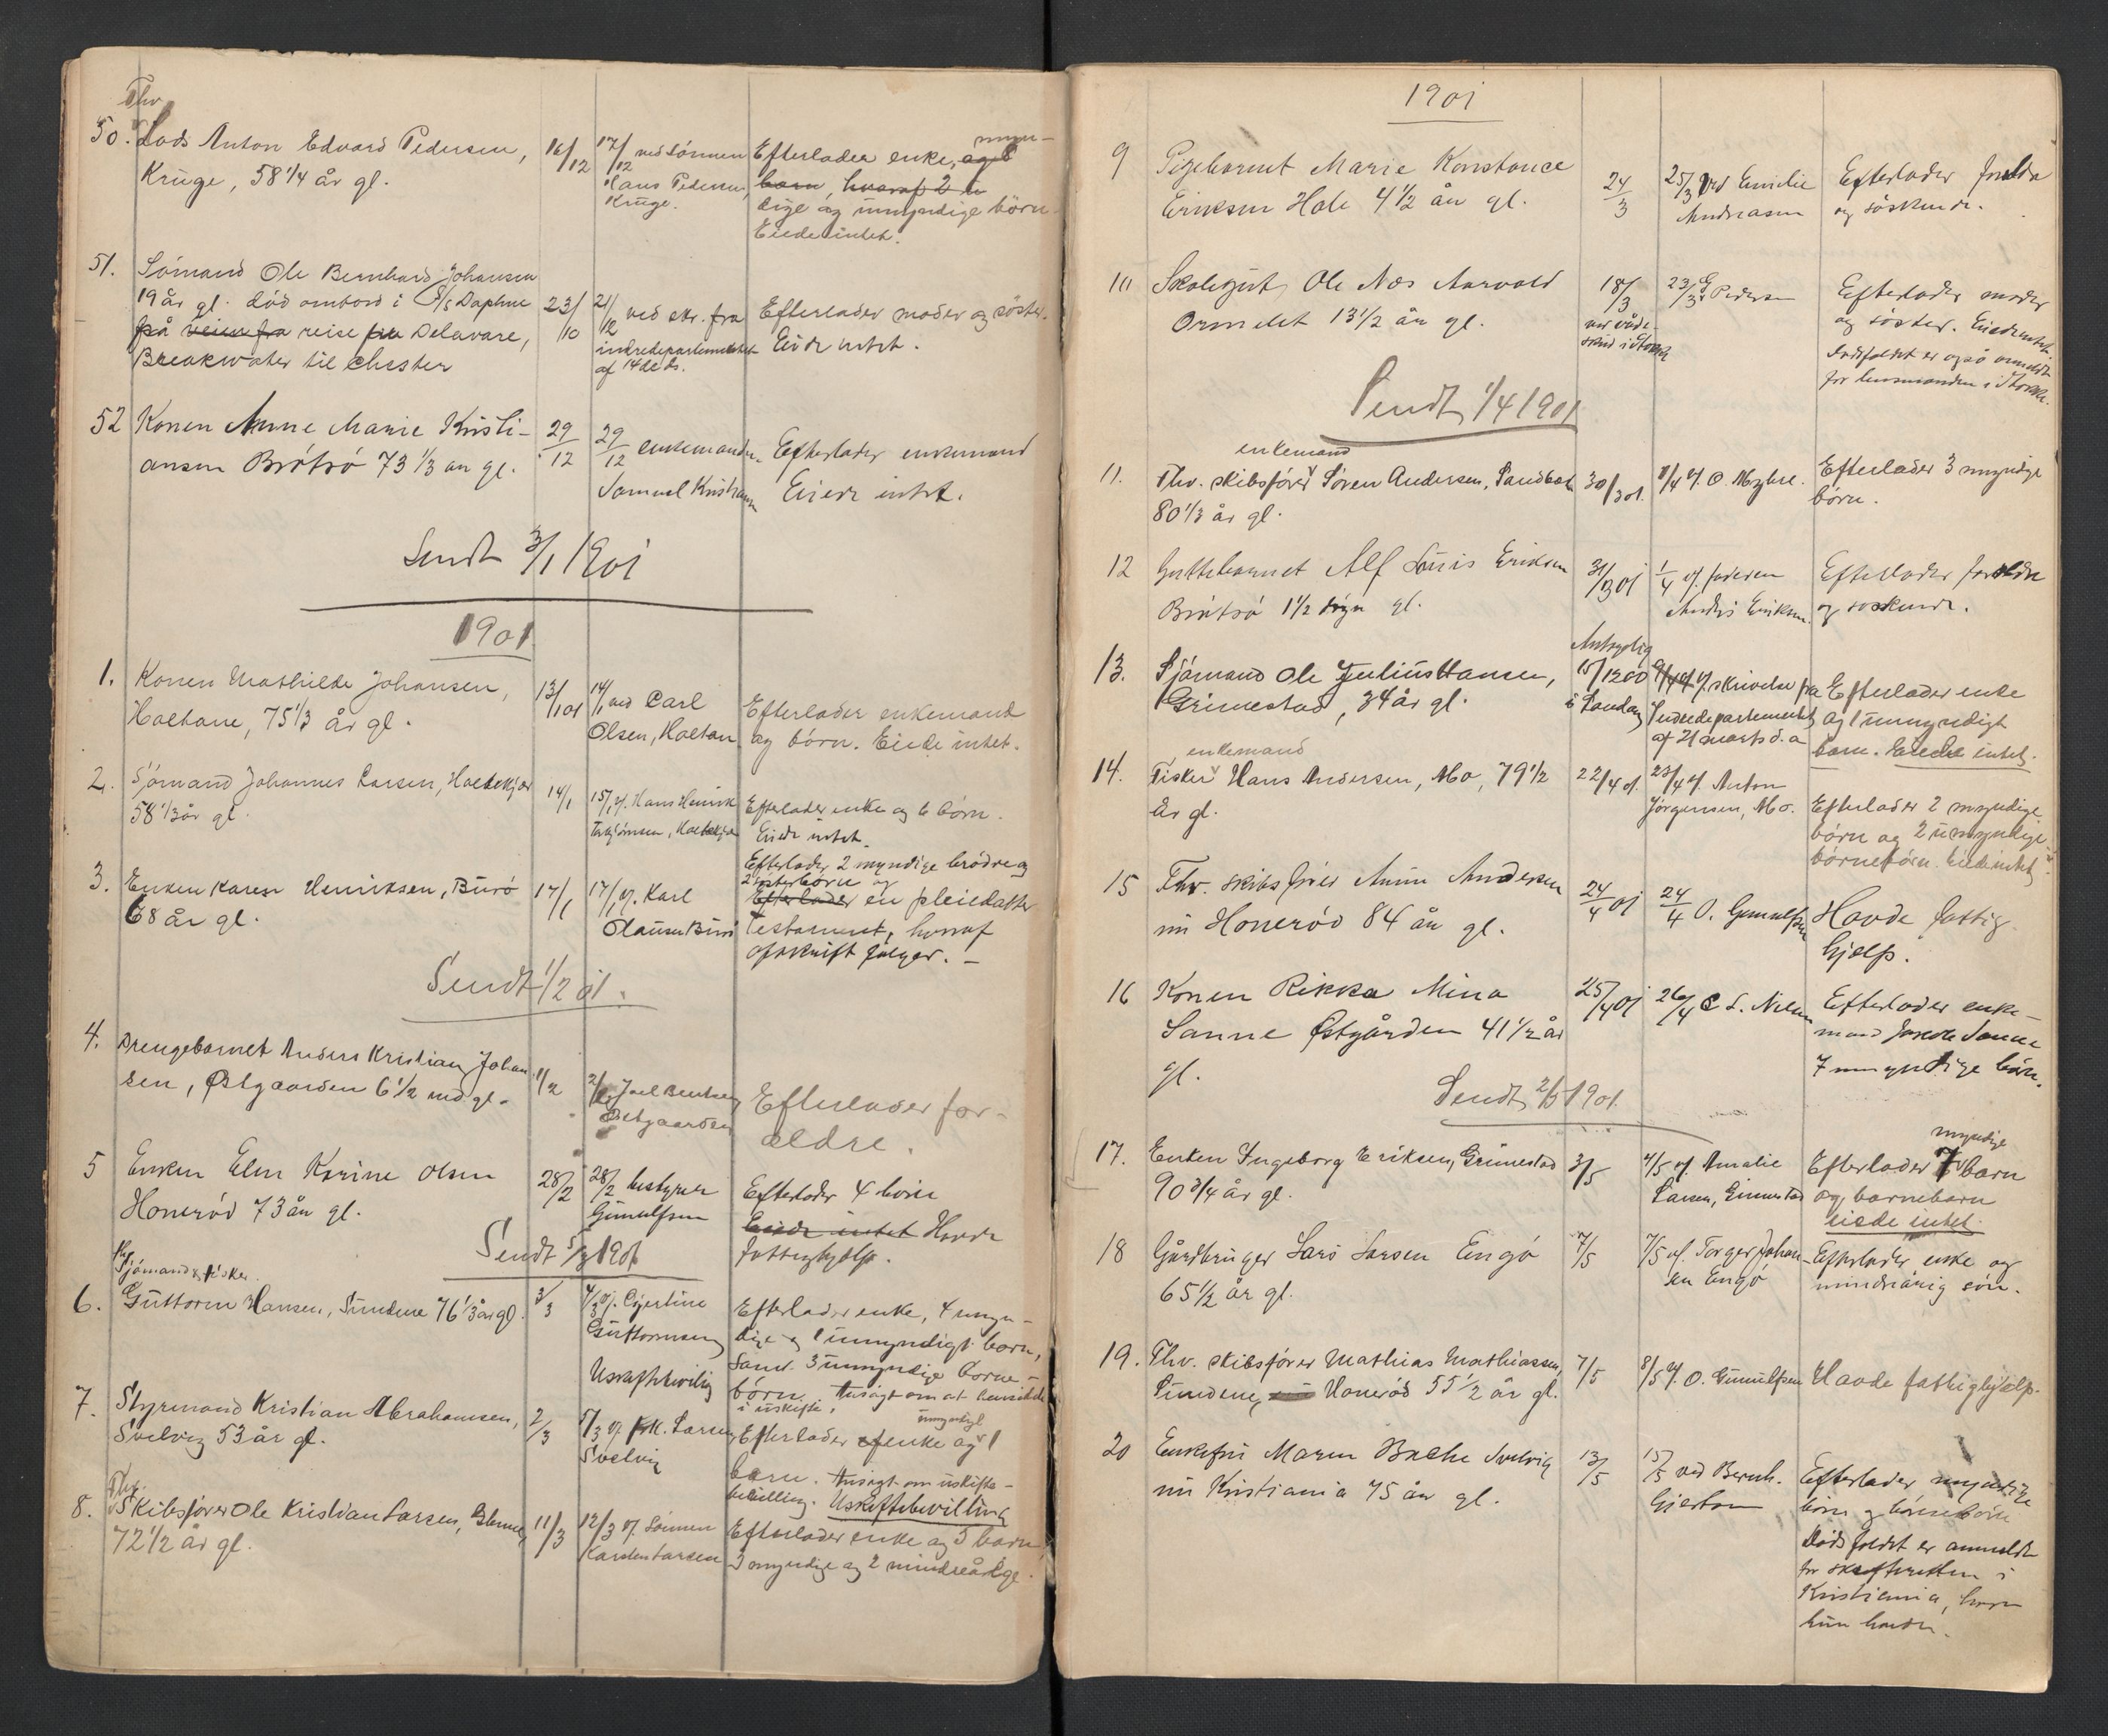 Thv
50. Lods Anton Edvard Pedersen,
Kruge, 58 1/4 år gl.
16/12
17/12 ved sönnen
Hans Pedersen,
Kruge.
Efterlader enke, og 8 myn-
barn, hvoraf 2 u
dige og umyndige börn.
Eiede intet.
51. Sömand Ole Bernhard Johansen
19 år gl. död ombord i S/S Daphne
på veien fra reise fra Delavare,
Breakwater til Chester
23/10
21/12 ved skr. fra
indredepartementet
af 14de ds.
Efterlader moder og söster.
Eiede intet.
52 Konen Anne Marie Kristi-
ansen Brötsö 73 1/3 år gl.
29/12
29/12 enkemanden
Samuel Kristiansen
Efterlader enkemand
Eiede intet.
Sendt 3/1 1901
1901
1. Konen Mathilde Johansen,
Haltane, 75 1/3 år gl.
13/1 01
14/1 ved Carl
Olsen, Holtan
Efterlader enkemand
og börn. Eiede intet.
2. Sjömand Johannes Larsen, Holtekjær
58 1/3 år gl.
14/1
15/1 v. Hans Henrik
Torbjörnsen, Holtekjær
Efterlader enke og 6 börn.
Eiede intet.
3. Enken Karen Henriksen, Burö
68 år gl.
17/1
17/1 v. Karl
Olausen Burö
Efterlader 2 myndige brödre og
2 sösterbörn og
Efterlader en pleiedatter
Testament, hvoraf
afskrift fölger. —
Sendt 1/2 01.
4. Drengebarnet Anders Kristian Johan
sen, Östgaarden 6 1/2 md. gl.
1/2
2/2 Joel Bentsen
Östgaarden
Efterlader for-
ældre.
5 Enken Elen Karine Olsen
Honeröd 73 år gl.
28/2
28/2 bestyrer
Gunulfsen
Efterlader 4 börn
Eiede intet Havde
fattighjælp.
Sendt 5/3 1901
Sjömand & fisker.
6. Guttorm Hansen, Sundene 76 1/3 år gl.
3/3
4/3 v. Gjertine
Guttormsen
Uskiftebevillig
Efterlader enke, 4 myn-
dige og 1 umyndigt barn,
samt 3 umyndige borne-
börn. Ansögt om at hensidde
i uskifte.
7. Styrmand Kristian Abrahamsen,
Svelvig 53 år gl.
2/3
5/3 v. K. Larsen
Svelvig
umyndigt
Efterlader enke og 1
barn. Ansögt om uskifte-
bevilling. Uskiftebevilling
8. Thv. Skibsförer Ole Kristian Larsen, Glomme,
72 1/2 år gl.
11/3
12/3 v. Sönnen
Karsten Larsen
Efterlader enke og 5 barn,
3 myndige og 2 mindreårige.
1901
9 Pigebarnet Marie Konstance
Eriksen Hole 4 1/2 år gl.
24/3
25/3 Ved Emilie
Andreasen
Efterlader forældre
og söskende.
10 Skolegut Ole Nes Aarvold
Ormelet 13 1/2 år gl.
18/3
ver våde-
skud i Stokke
23/3 G Pedersen
Efterlader moder
og söster. Eiede intet.
Dödsfaldet er også anmeldt
for lensmanden i Stokke.
Sendt 1/4 1901
enkemand
11. Thv. skibsförer Sören Andersen, Sandbæk
80 1/3 år gl.
30/3 01.
1/4 v. O. Myhre.
Efterlader 3 myndige
börn.
12 Guttebarnet Alf Louis Eriksen
Brötsö 1 1/2 dögn gl.
31/3 01
1/4 v. faderen
Anders Eriksen.
Efterlader forældre
og söskende.
13. Sjömand Ole Julius Hansen,
Grimestad, 34 år gl.
Antagelig
15/12 00
i London
9/4 01 v. skrivelse fra
Indredepartementet
af 21 marts d.a
Efterlader enke
og 1 umyndigt
barn. Eiede intet.
enkemand
14. Fisker Hans Andersen, Mo, 79 1/2
år gl.
22/4 01.
23/4 v. Anton
Jörgensen, Mo.
Efterlader 2 myndige
börn og 2 umyndige
börnebörn. Eiede intet.
15 Thv. skibsförer Anun Andersen
nu Honeröd 84 år gl.
24/4 01
24/4 O. Gunulfsen
Havde fattig
hjælp.
16 Konen Rikka Mina
Sanne Östgården 41 1/2 år
gl.
25/4 01
26/4 C L. Nielsen
Efterlader enke-
mand Jakob Sanne
7 umyndige börn.
Sendt 2/5 1901.
17. Enken Ingeborg Eriksen, Grimestad
90 3/4 år gl.
3/5
4/5 v. Amalie
Larsen, Grimestad
myndige
Efterlader 7 barn
og barnebarn
eiede intet.
18 Gårdbruger Lars Larsen Engö
65 1/2 år gl.
7/5
7/5 v. Torger Johan-
sen Engö
Efterlader enke og
mindreårig sön.
19. Thv. skibsförer Mathias Mathiassen,
Sundene, nu Honeröd 55 1/2 år gl.
7/5
8/5 v. O. Gunulfsen
Havde fattighjælp.
20 Enkefru Maren Bache Svelvig
nu Kristiania 75 år gl.
13/5
15/5 ved Bernh.
Gjertsen
Efterlader myndige
börn og börnebörn
Dödsfaldet er anmeldt
for skifteretten i
Kristiania, hvor
hun boede.